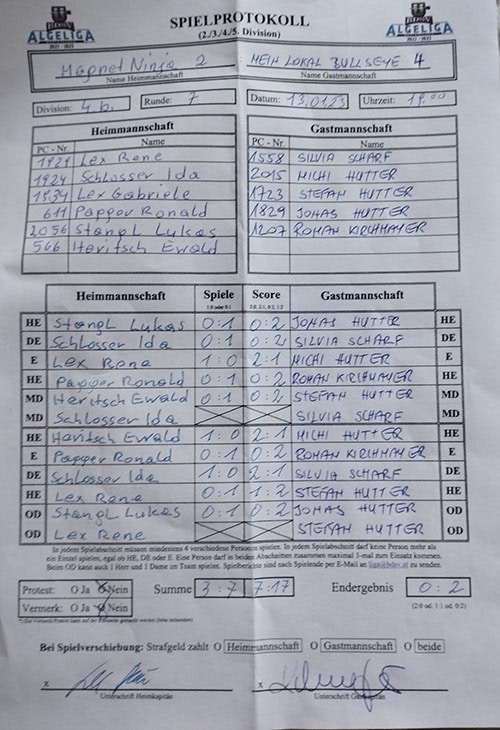 BDSV
ALGELIGA
SPIELPROTOKOLL
(2./3./4./5. Division)
BDSV
ALGELIGA
Magnet Ninja 2
MEIN LOKAL BULLSEYE 4
Name Heimmannschaft
Name Gastmannschaft
Division: 4.b.
Runde: 7
Datum: 13.01.23
Uhrzeit: 19.00
Heimmannschaft
PC - Nr. Name
1921 Lex Rene
1924 Schlosser Ida
1934 Lex Gabriele
611 Papper Ronald
2056 Stangl Lukas
566 Heritsch Ewald
Gastmannschaft
PC - Nr. Name
1558 SILVIA SCHARF
2015 MICHI HUTTER
1723 STEFAN HUTTER
1829 JONAS HUTTER
1207 ROMAN KIRCHMAYER
Heimmannschaft Spiele Score Gastmannschaft
1:0 oder 0:1 2:0, 2:1, 0:2, 1:2
HE Stangl Lukas 0:1 0:2 JONAS HUTTER HE
DE Schlosser Ida 0:1 0:2 SILVIA SCHARF DE
E Lex Rene 1:0 2:1 MICHI HUTTER E
HE Papper Ronald 0:1 0:2 ROMAN KIRCHMAYER HE
MD Heritsch Ewald 0:1 0:2 STEFAN HUTTER MD
MD Schlosser Ida SILVIA SCHARF MD
HE Heritsch Ewald 1:0 2:1 MICHI HUTTER HE
E Papper Ronald 0:1 0:2 ROMAN KIRCHMAYER E
DE Schlosser Ida 1:0 2:1 SILVIA SCHARF DE
HE Lex Rene 0:1 1:2 STEFAN HUTTER HE
OD Stangl Lukas 0:1 0:2 JONAS HUTTER OD
OD Lex Rene STEFAN HUTTER OD
In jedem Spielabschnitt müssen mindestens 4 verschiedene Personen spielen. In jedem Spielabschnitt darf keine Person mehr als
ein Einzel spielen, egal ob HE, DE oder E. Eine Person darf in beiden Abschnitten zusammen maximal 3-mal zum Einsatz kommen.
Beim OD kann auch 1 Herr und 1 Dame im Team spielen. Spielberichte sind nach Spielende per E-Mail an liga@bdsv.at zu senden.
Protest: O Ja O Nein
Vermerk: O Ja O Nein
Summe 3:7 7:17
Endergebnis 0:2
(2:0 od. 1:1 od. 0:2)
Bei Spielverschiebung: Strafgeld zahlt O Heimmannschaft O Gastmannschaft O beide
x
x
Unterschrift Heimkapitän
Unterschrift Gastkapitän